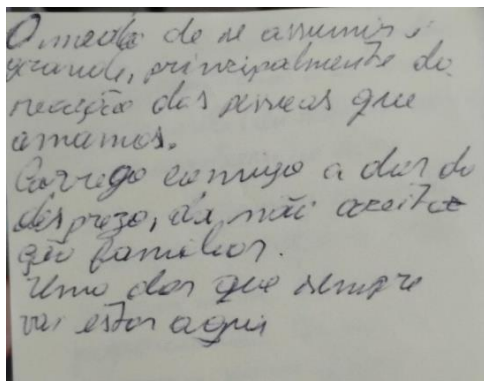 O medo de se assumir é
grande, principalmente da
reação das pessoas que
amamos.
Carrego comigo a dor do
desprezo, da não aceita
ção familiar.
Uma dor que sempre
vai estar aqui